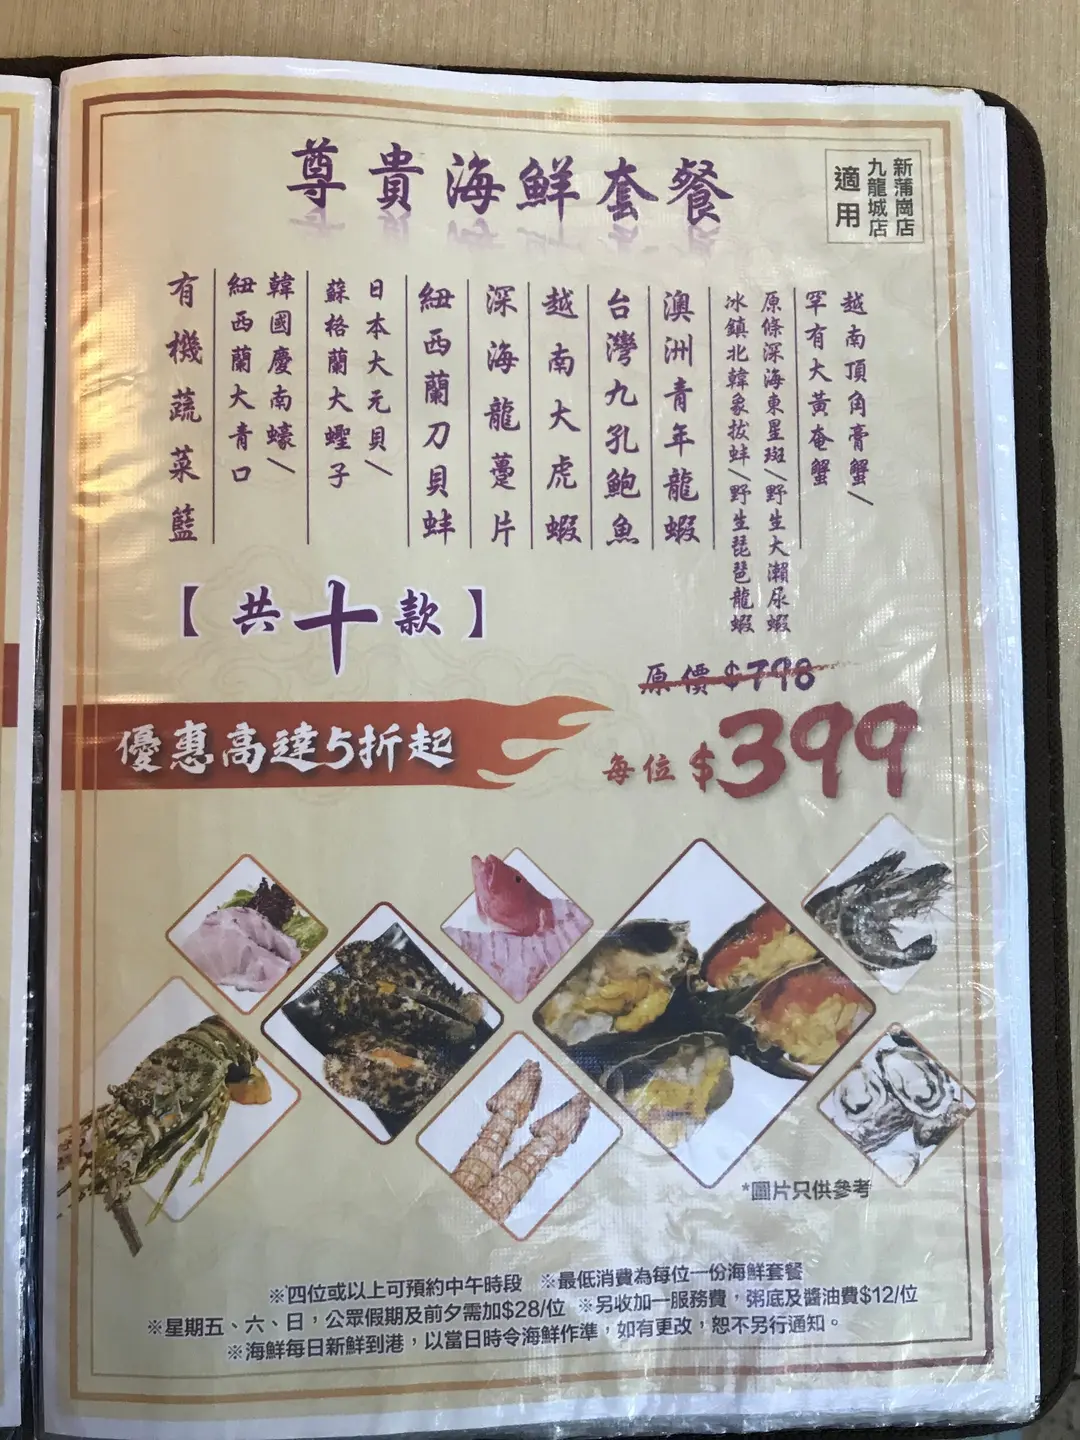 尊貴海鮮套餐
新蒲崗店
九龍城店
適用
越南頂角膏蟹/
罕有大黃奄蟹
原條深海東星斑/野生大瀨尿蝦
冰鎮北韓象拔蚌/野生琵琶龍蝦
澳洲青年龍蝦
台灣九孔鮑魚
越南大虎蝦
深海龍躉片
紐西蘭刀貝蚌
日本大元貝/
蘇格蘭大蟶子
韓國慶南蠔/
紐西蘭大青口
有機蔬菜籃
【共十款】
原價$798
優惠高達5折起
每位$399
*圖片只供參考
※四位或以上可預約中午時段 ※最低消費為每位一份海鮮套餐
※星期五、六、日，公眾假期及前夕需加$28/位 ※另收加一服務費，粥底及醬油費$12/位
※海鮮每日新鮮到港，以當日時令海鮮作準，如有更改，恕不另行通知。